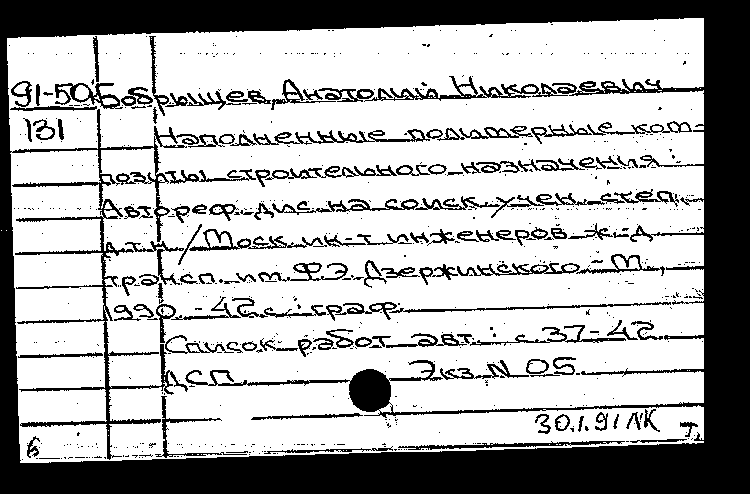 91-50 Бобрыщев, Анатолий Николаевич
131 Наполненные полимерные ком-
позиты строительного назначения :
Автореф. дис. на соиск. учен. степ.
д.т.н. / Моск. ин-т инженеров ж.-д.
трансп. им. Ф.Э. Дзержинского. - М.,
1990. - 42 с. : граф.
Список работ авт.: с. 37-42
ДСП. Экз. N 05.
30.1.91 NK
6